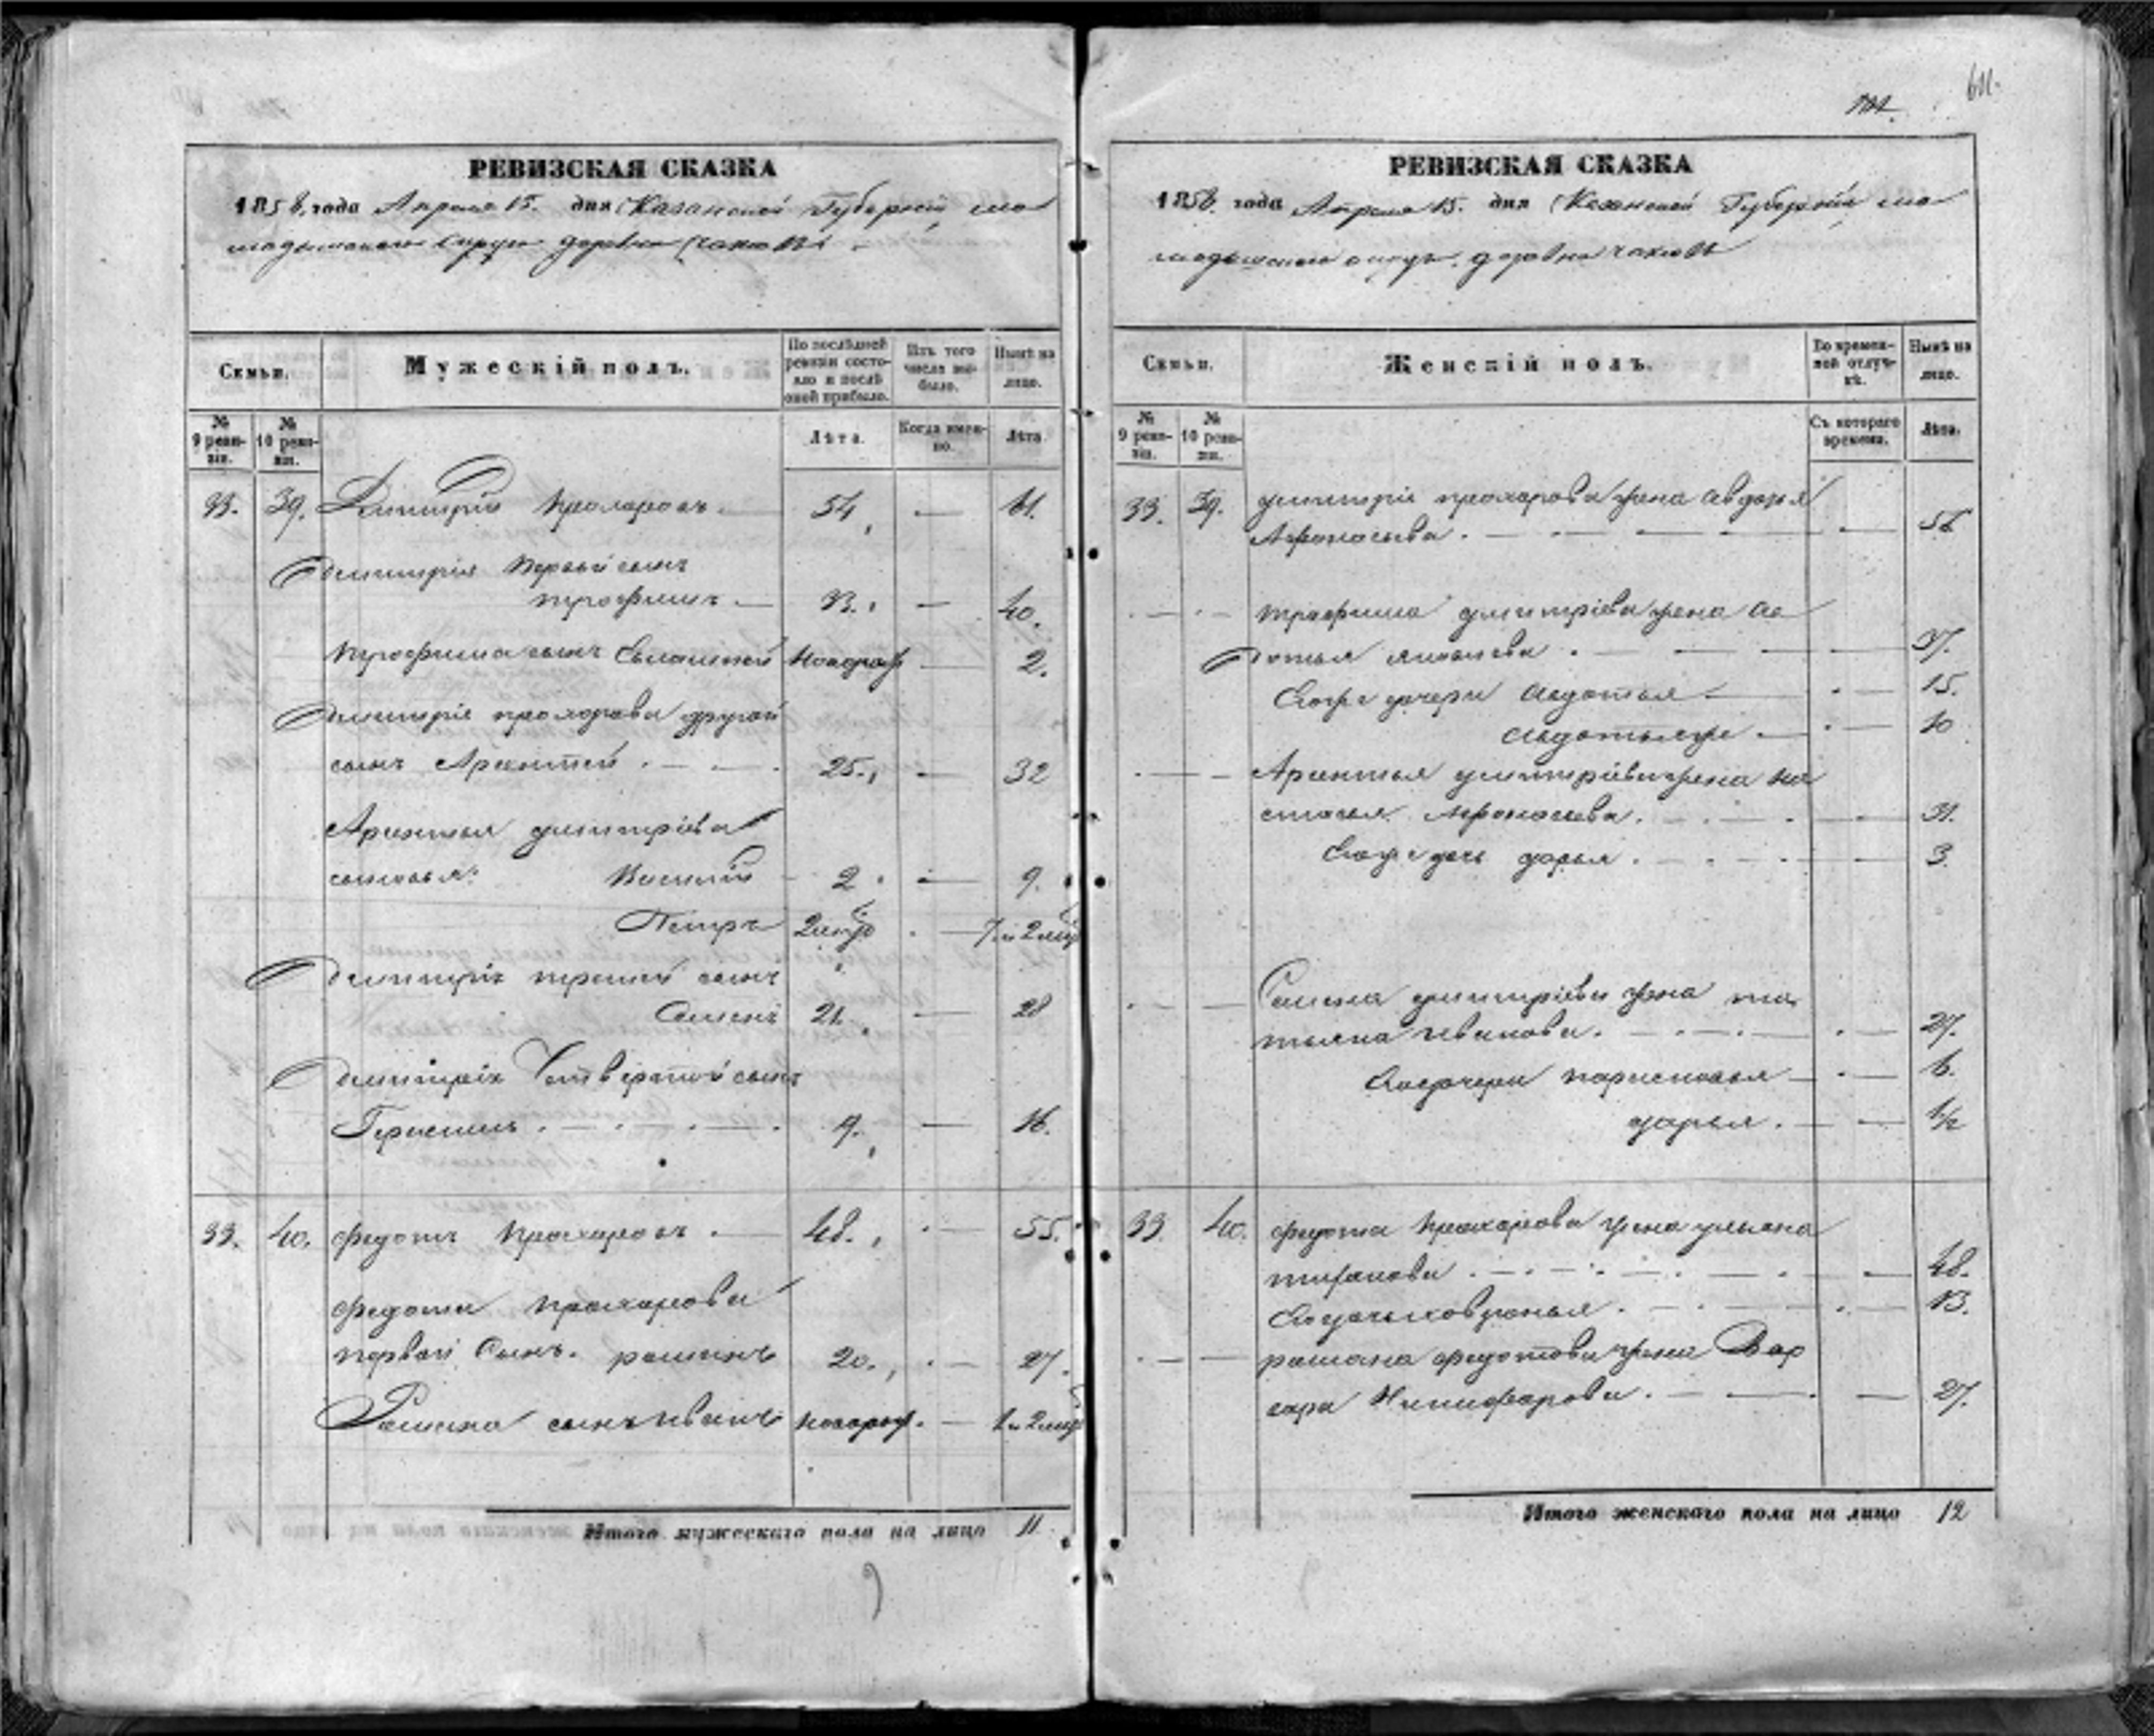 РЕВИЗСКАЯ СКАЗКА
1858 года Апреля 15. дня Казанской Губерніи, ма
мадышскаго округа деревни
Семьи.
Мужескій полъ.
По послѣдней ревизіи состояло и послѣ оной прибыло.
Изъ того числа выбыло.
Нынѣ на лицо.
№ 9 ревизіи.
№ 10 ревизіи.
Лѣта.
Когда именно.
Лѣта.
33. 39. Дмитрій Прохоровъ. 54 — 61.
Дмитрія Первый сынъ
трофимъ — 33. — 40.
трофима сынъ новорож — 2.
Дмитрія прохорова другой
сынъ Арентей 25. — 32
Арентья дмитріева
сыновья: Василій 2 — 9.
Петръ 2 мѣс — 7 и 2 мѣс
Дмитрія третій сынъ
Семенъ 21. — 28
Дмитрія Четвертой сынъ
Герасимъ 9. — 16.
33. 40. федотъ Прохоровъ 48. — 55.
федота прохорова
первой Сынъ. романъ 20. — 27.
Романа сынъ иванъ новорож. — 1 и 2 мѣс
Итого мужескаго пола на лицо 11
611.
РЕВИЗСКАЯ СКАЗКА
1858. года Апреля 15. дня Казанской Губерніи ма
мадышскаго округа. деревни
Семьи.
Женскій полъ.
Во временной отлучкѣ.
Нынѣ на лицо.
№ 9 ревизіи.
№ 10 ревизіи.
Съ котораго времени.
Лѣта.
33. 39. дмитрія прохорова жена авдотья
Афонасьева. — 56
трофима дмитріева жена ав
дотья яковлева — 37.
Ево же дочери авдотья — 15.
авдотья же — 10
Арентья дмитріева жена на
стасья Афонасьева. — 31.
Ево же дочь дарья. — 3.
Семена дмитріева жена та
тьяна иванова. — 27.
Ево дочери парасковья — 6.
дарья. — 1/2
33. 40. федота прохорова жена ульяна
— 48.
— 13.
романа федотова жена Вар
вара Никифорова. — 27.
Итого женскаго пола на лицо 12